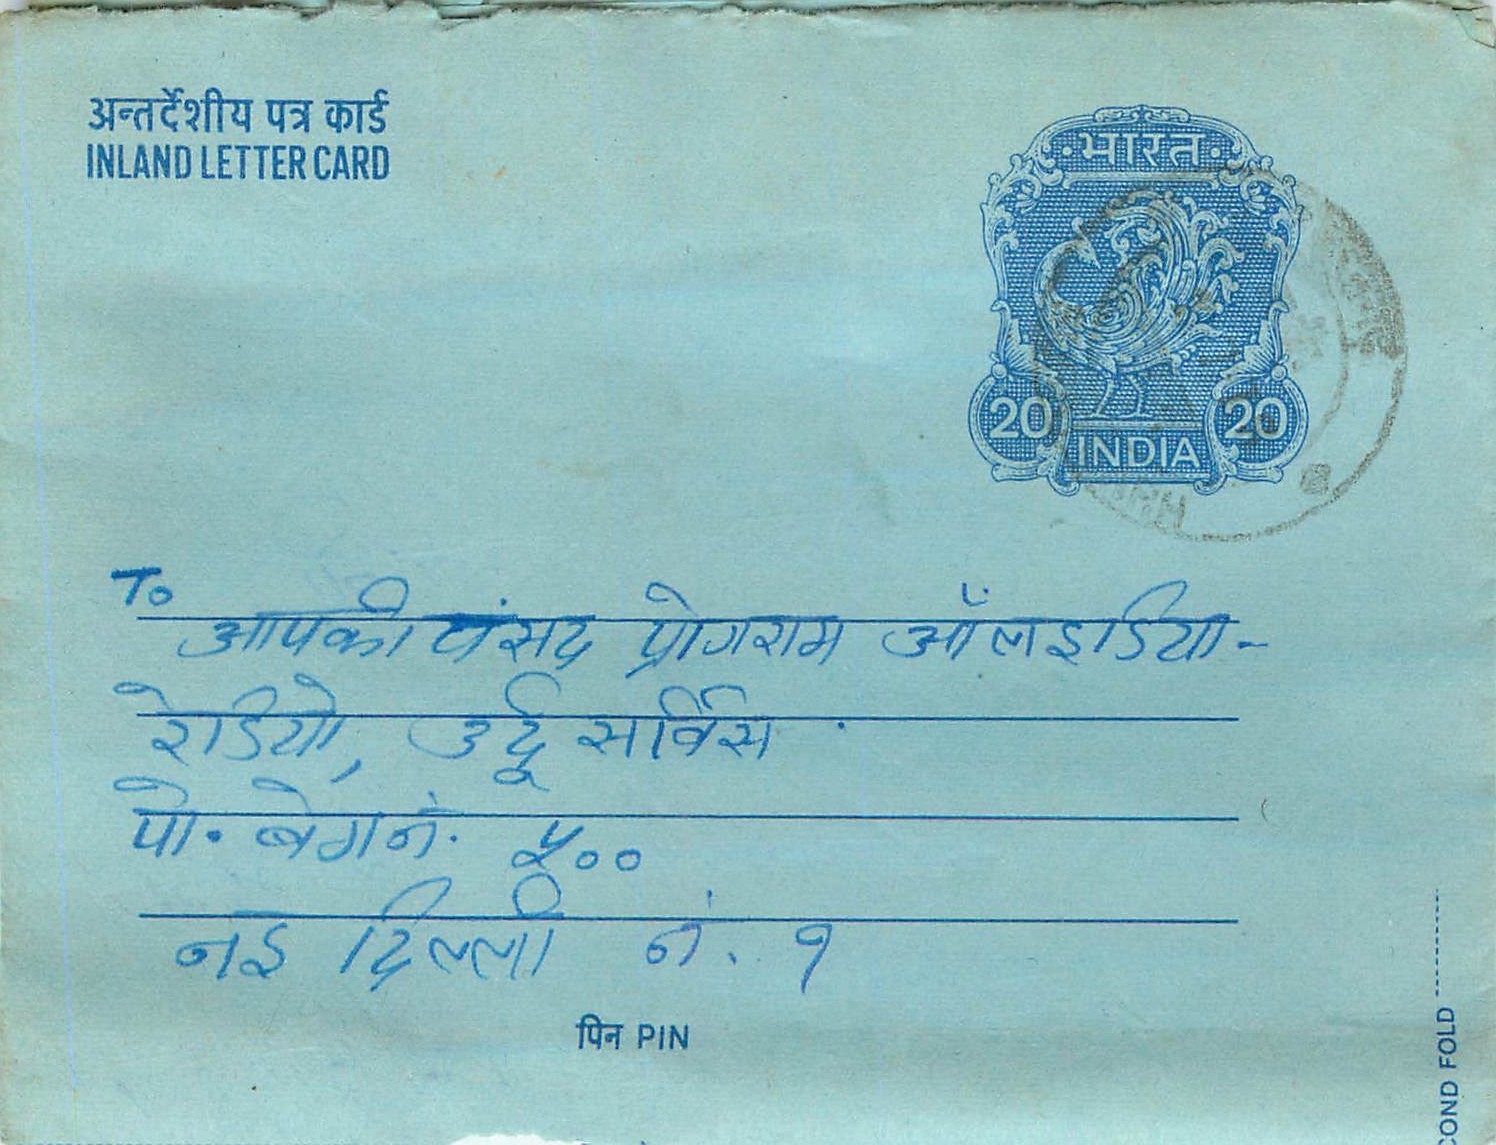 अन्तर्देशीय पत्र कार्ड
INLAND LETTER CARD
भारत
20 20
INDIA
To
आपकी पंसद प्रोगराम ऑल इंडिया-
रेडियो, उर्दू सर्विस
पो. बेग नं. ५००
नई दिल्ली नं. १
पिन PIN
OND FOLD